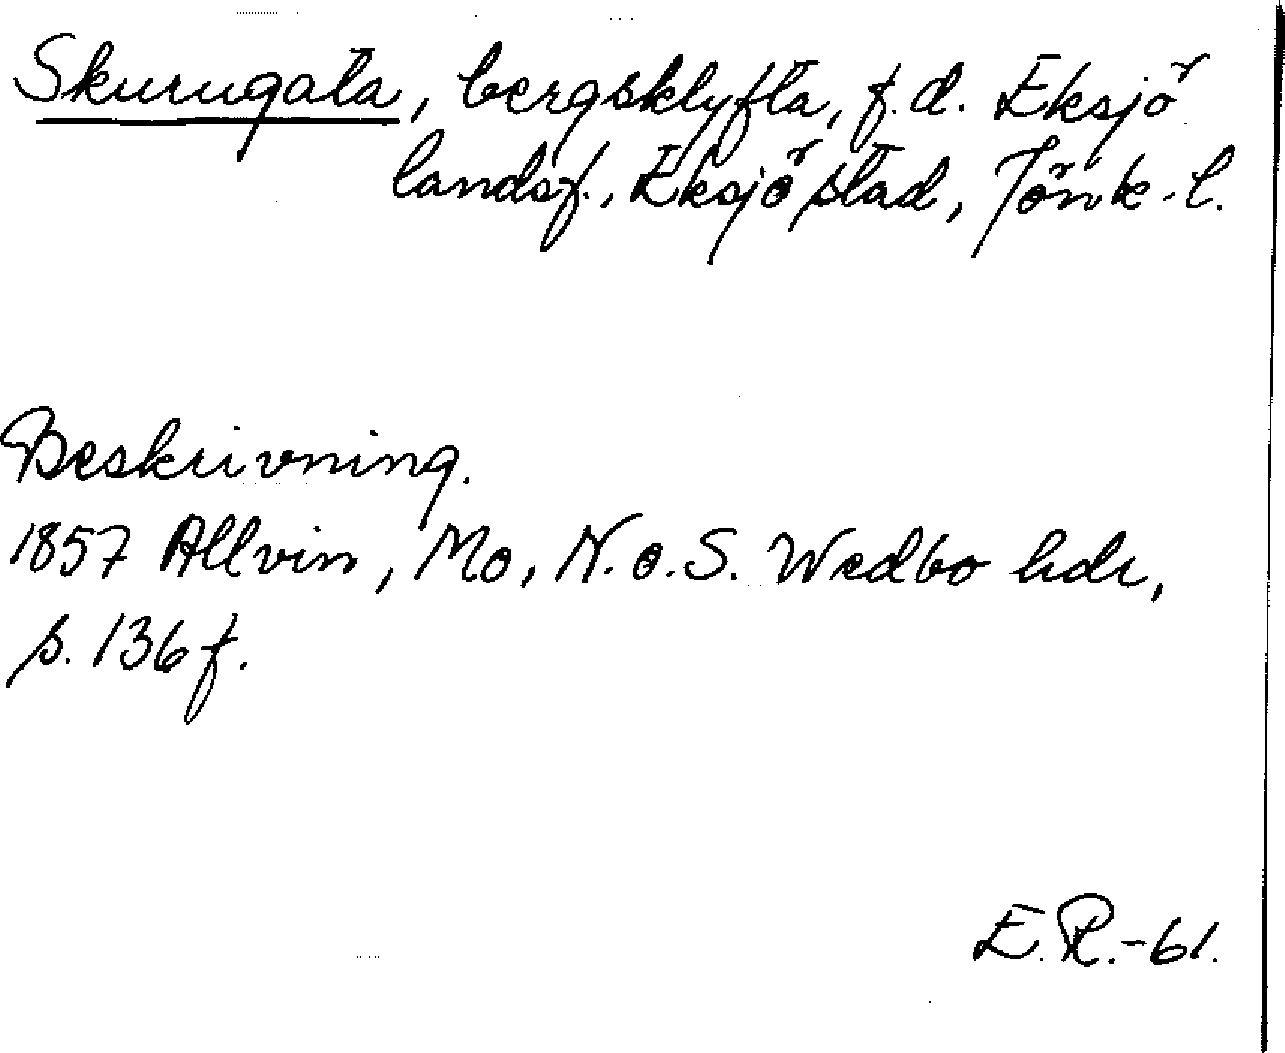 Skurugata, bergsklyfta, f.d. Eksjö
landsf., Eksjö stad, Jönk. l.
Beskrivning.
1857 Allvin, Mo, N.o.S. Wedbo hdr,
s. 136 f.
E.R.-61.